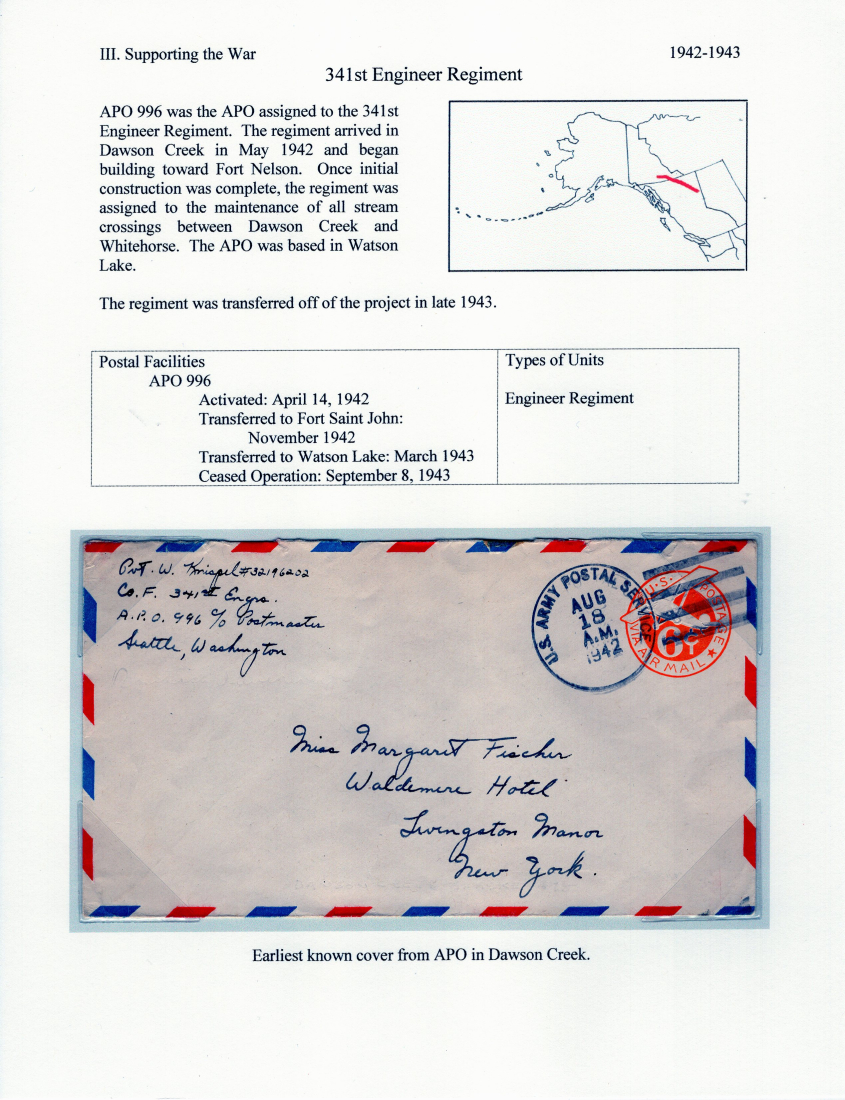 III. Supporting the War 1942-1943
341st Engineer Regiment
APO 996 was the APO assigned to the 341st
Engineer Regiment. The regiment arrived in
Dawson Creek in May 1942 and began
building toward Fort Nelson. Once initial
construction was complete, the regiment was
assigned to the maintenance of all stream
crossings between Dawson Creek and
Whitehorse. The APO was based in Watson
Lake.
The regiment was transferred off of the project in late 1943.
Postal Facilities
APO 996
Activated: April 14, 1942
Transferred to Fort Saint John:
November 1942
Transferred to Watson Lake: March 1943
Ceased Operation: September 8, 1943
Types of Units
Engineer Regiment
Pvt. W. #32196202
Co. F. 341st Engrs.
A.P.O. 996 c/o Postmaster
Seattle, Washington
U.S. ARMY POSTAL SERVICE
AUG
18
A.M.
1942
U.S. POSTAGE
6¢
VIA AIR MAIL
Miss Margaret Fischer
Waldemere Hotel
Livingston Manor
New York.
Earliest known cover from APO in Dawson Creek.